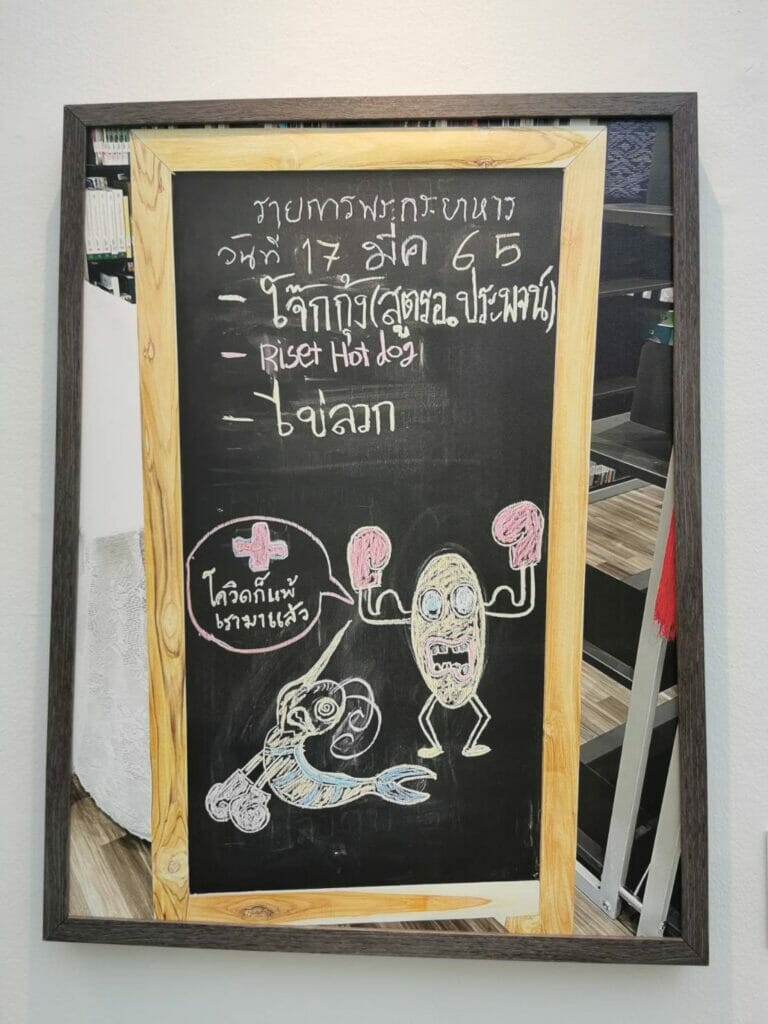 รายการพระกระยาหาร
วันที่ 17 มีค 65
- โจ๊กกุ้ง(สูตรอ.ประพจน์)
- Riset Hot dog
- ไข่ลวก
โควิดก็แพ้
เรามาแล้ว